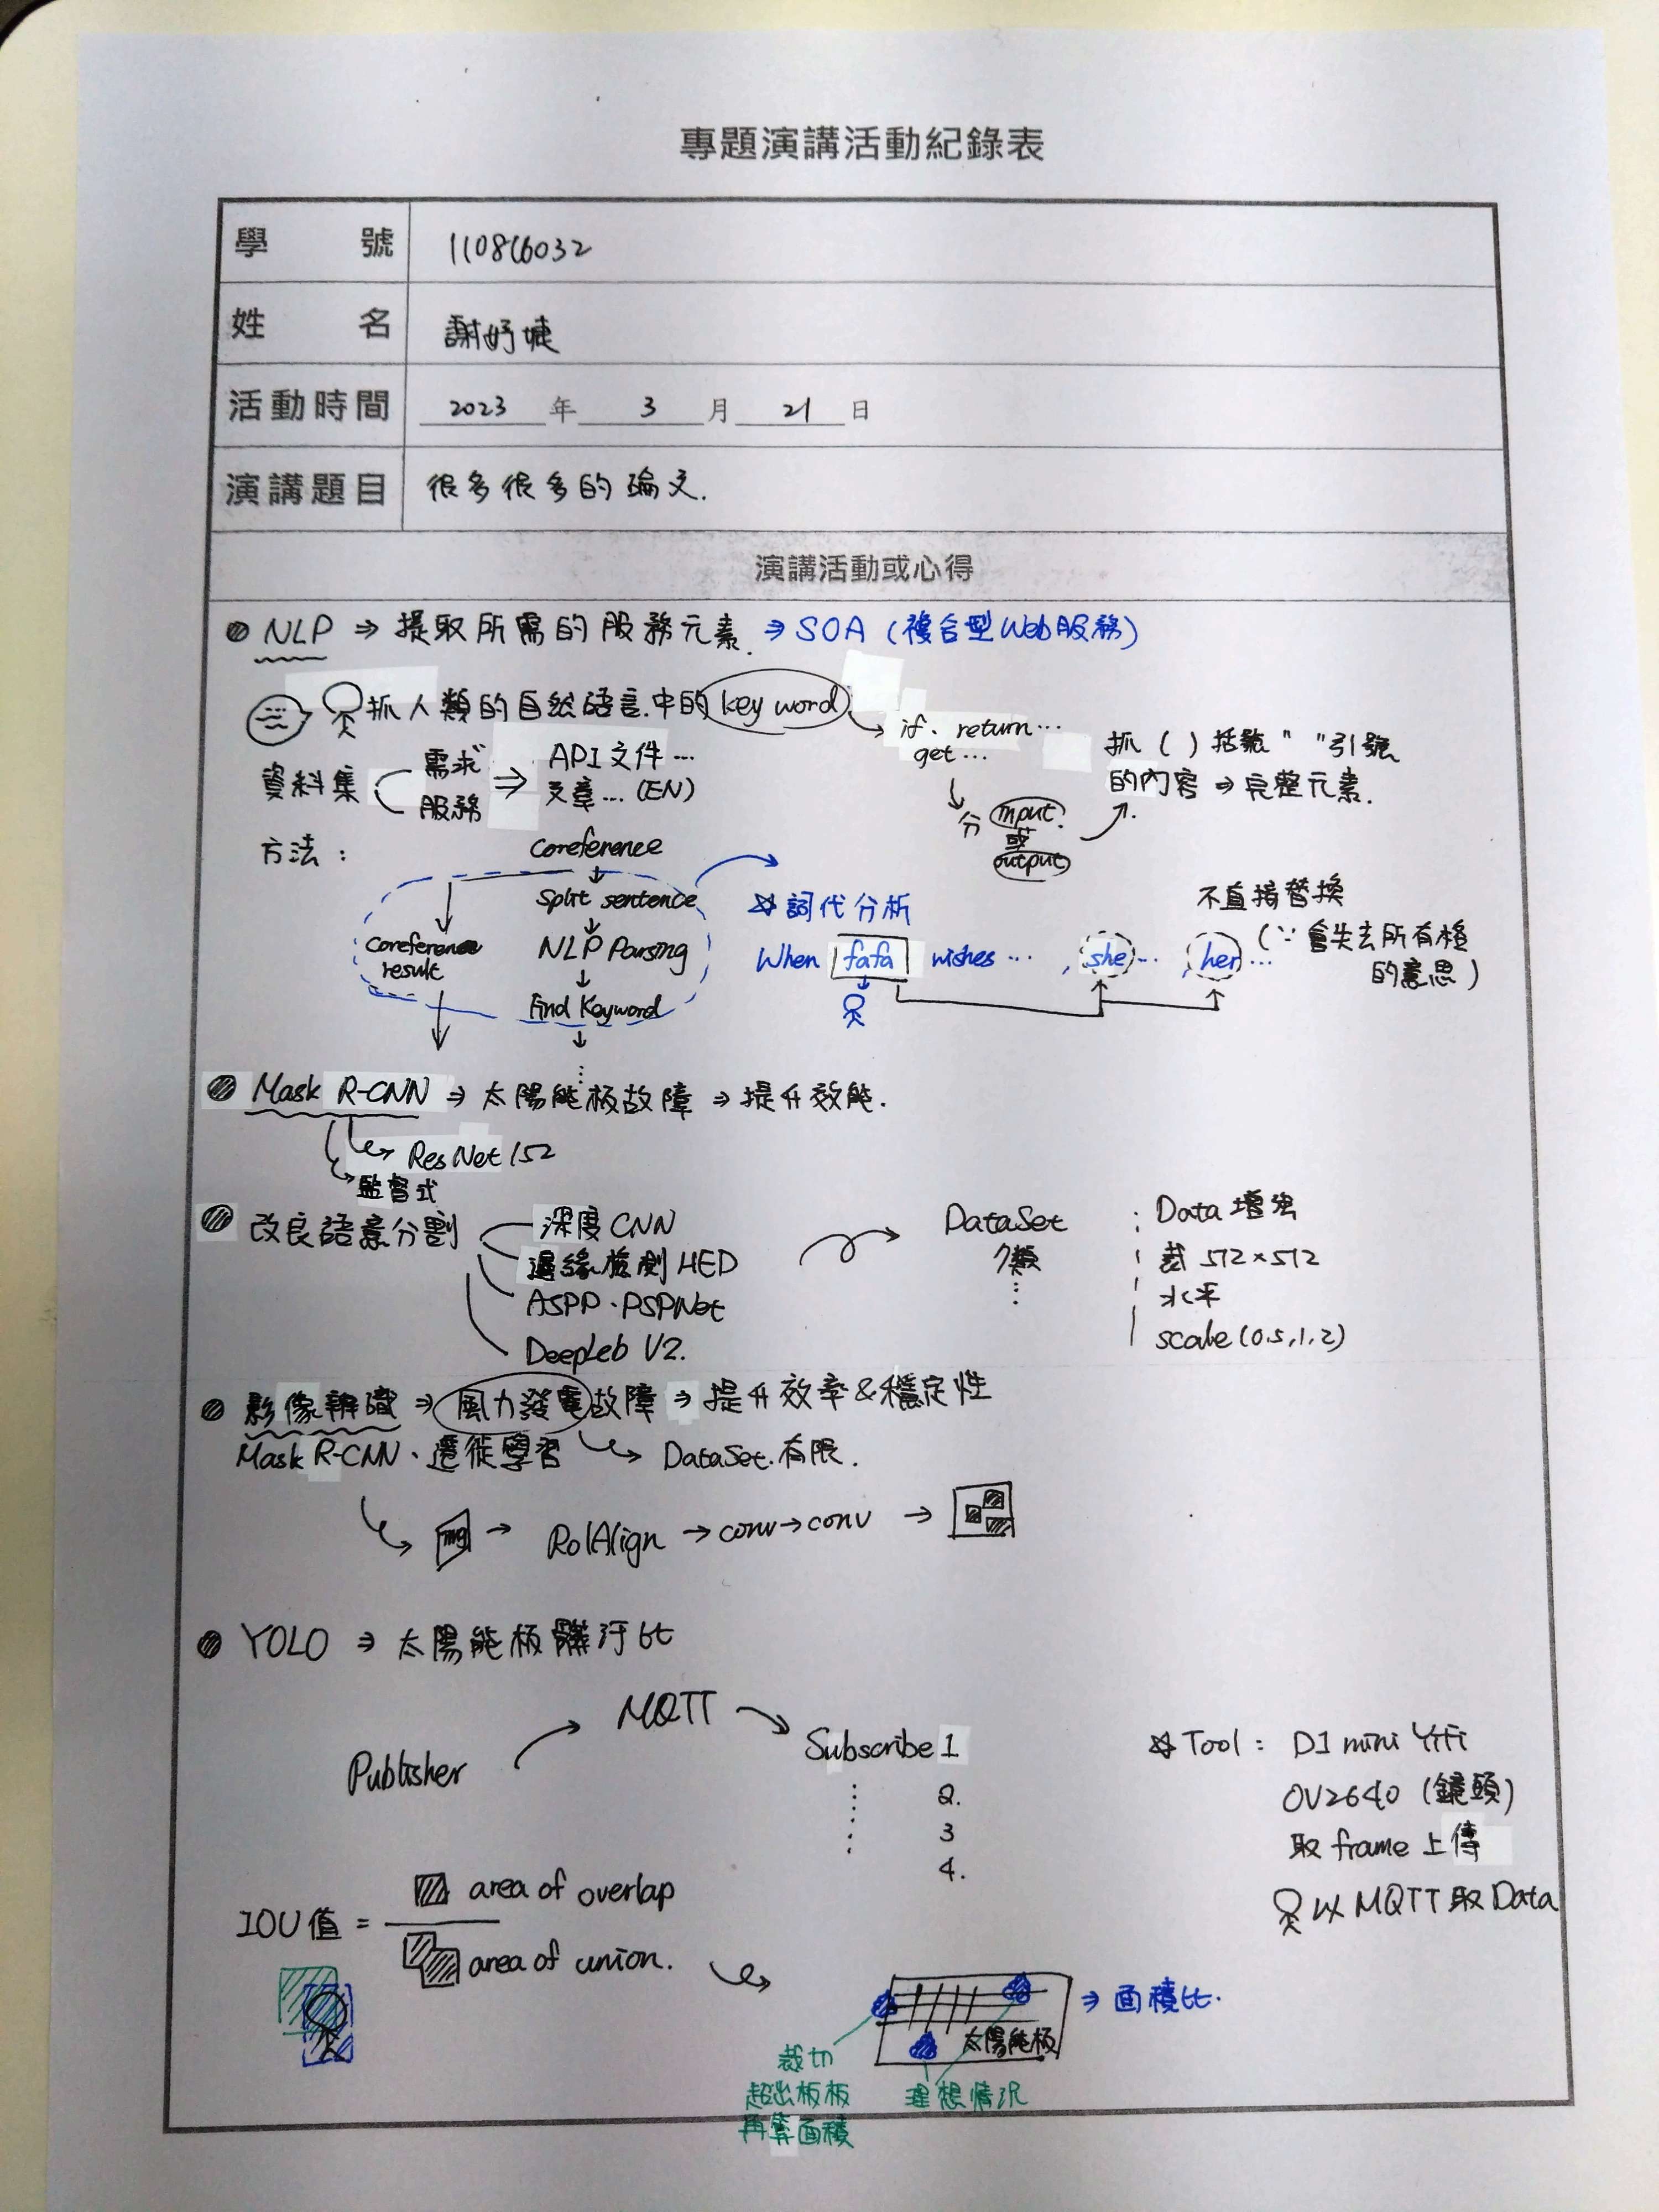 專題演講活動紀錄表
學號 110816032
姓名 謝妤婕
活動時間 2023 年 3 月 21 日
演講題目 很多很多的論文.
演講活動或心得
NLP ⇒ 提取所需的服務元素. ⇒ SOA (複合型Web服務)
抓人類的自然語言中的 key word
if、return…
get…
抓 ( ) 括號 " " 引號
的內容 ⇒ 完整元素.
分 input?
或
output
資料集
需求
服務
⇒ API 文件…
文章… (EN)
方法:
Coreference
Split sentence
Coreference
result
NLP Parsing
Find Keyword
☆ 詞代分析
When fafa wishes … , she … , her …
不直接替換
(∵ 會失去所有格
的意思)
Mask R-CNN ⇒ 太陽能板故障 ⇒ 提升效能.
ResNet 152
監督式
改良語意分割
深度 CNN
邊緣檢測 HED
ASPP、PSPNet
DeepLeb V2.
DataSet
7類
⋮
: Data 增強
裁 512×512
水平
scale (0.5,1,2)
影像辨識 ⇒ 風力發電故障 ⇒ 提升效率 & 穩定性
Mask R-CNN、遷徙學習 DataSet.有限.
img → RoIAlign → conv → conv →
YOLO ⇒ 太陽能板髒汙比
Publisher
MQTT
Subscribe 1
2.
3
4.
☆ Tool: D1 mini
OV2640 (鏡頭)
取 frame 上傳
以 MQTT 取 Data
IOU值 =
area of overlap
area of union.
太陽能板
⇒ 面積比.
裁切
超出板板
再算面積
理想情況